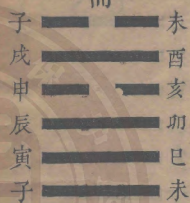 而
子 未
戌 酉
申 亥
辰 卯
寅 巳
子 未